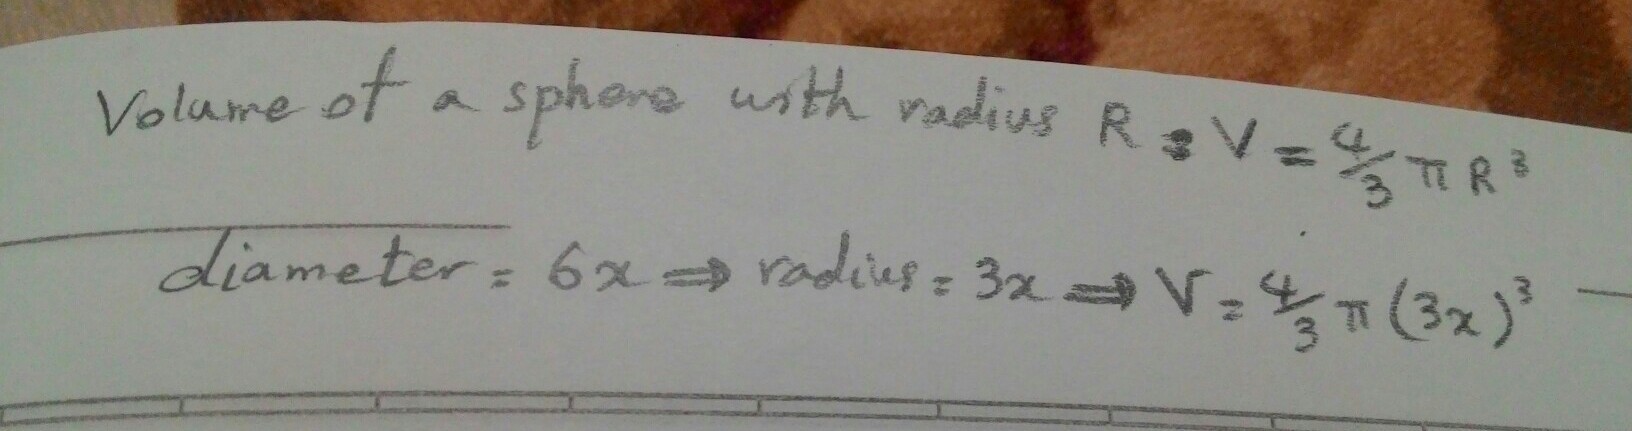 Volume of a sphere with radius R : V = 4/3 π R³
diameter = 6x ⇒ radius = 3x ⇒ V = 4/3 π (3x)³